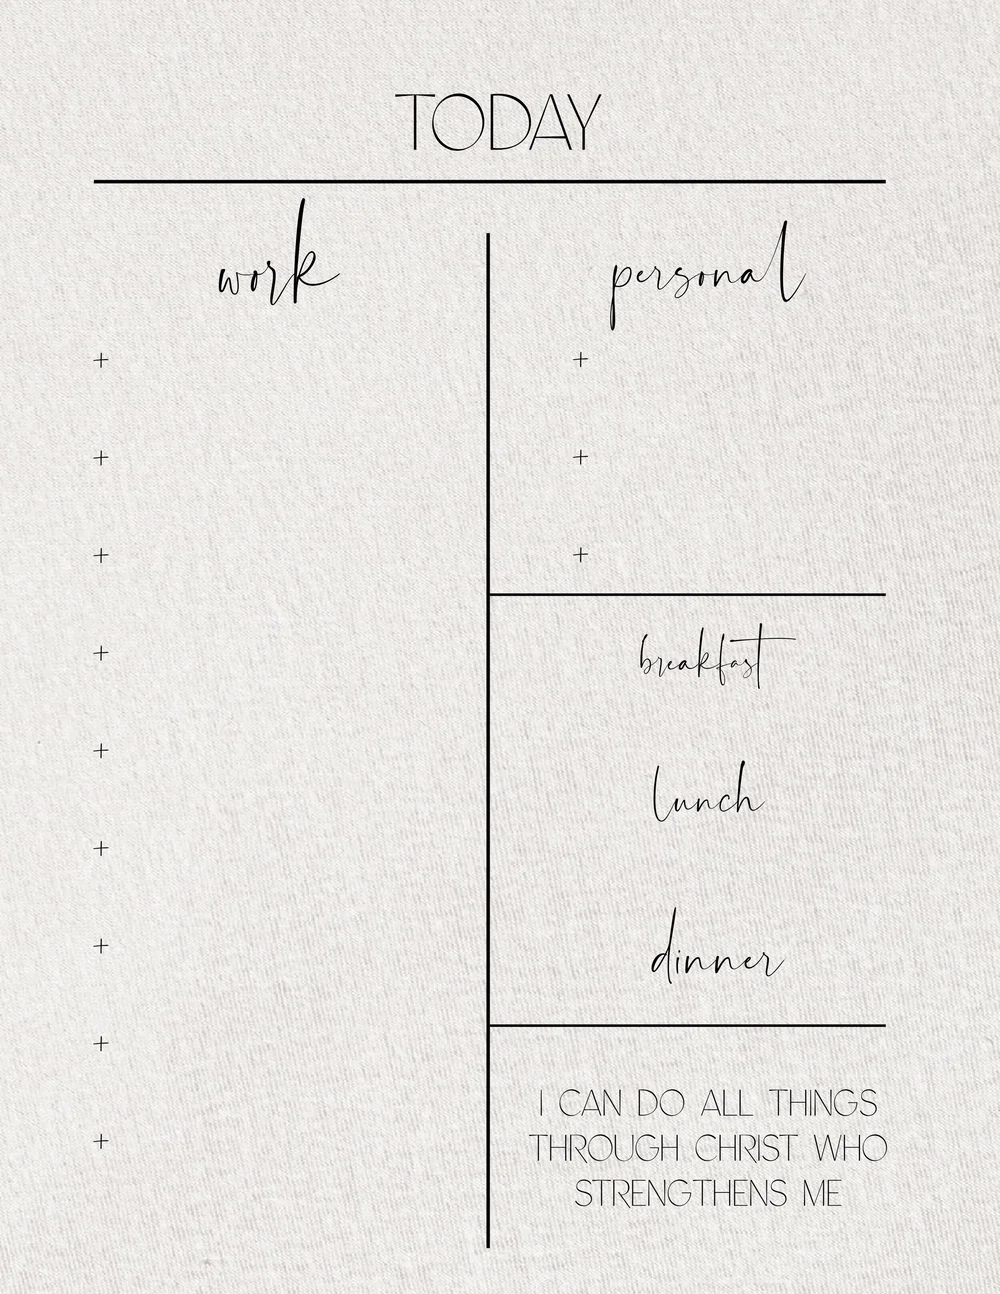 TODAY
work
+
+
+
+
+
+
+
+
+
personal
+
+
+
breakfast
lunch
dinner
I CAN DO ALL THINGS
THROUGH CHRIST WHO
STRENGTHENS ME